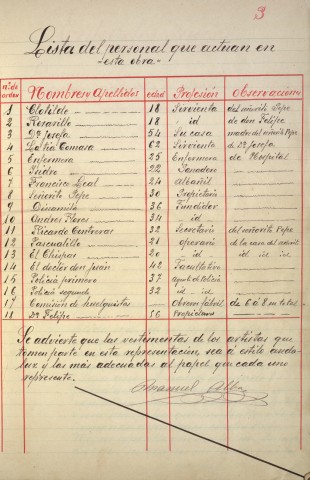 3
Lista del personal que actuan en
esta obra
nº de orden Nombres Apellidos edad Profesión Observaciones
1 Clotilde 18 Sirvienta del señorito Pepe
2 Rosarillo 18 id de don Felipe
3 Dª Josefa 54 Su casa madre del señorito Pepe
4 La tia Tomasa 62 Sirvienta de Dª Josefa
5 Enfermera 25 Enfermera de Hospital
6 Isidro 22 Ganadero
7 Francisco Leal 24 Albañil
8 Señorito Pepe 30 Propietario
9 Dinamita 36 Fundidor
10 Andres Flores 34 id
11 Ricardo Contreras 32 Secretario del señorito Pepe
12 Pascualillo 21 operario de la casa del
13 El Chispas 20 id id id id
14 El doctor don Juan 42 Facultativo
15 Policia primero 37 Agente de
16 Policia segundo 32 id id
17 Comisión de huelguistas Obreros fabril de 6 á 8 en total
18 Dº Felipe 56 Propietario
Se advierte que las vestimentas de los artistas que
tomen parte en esta representación sea á estilo anda-
luz y las más adecuadas al papel que cada uno
represente.
Manuel Alba